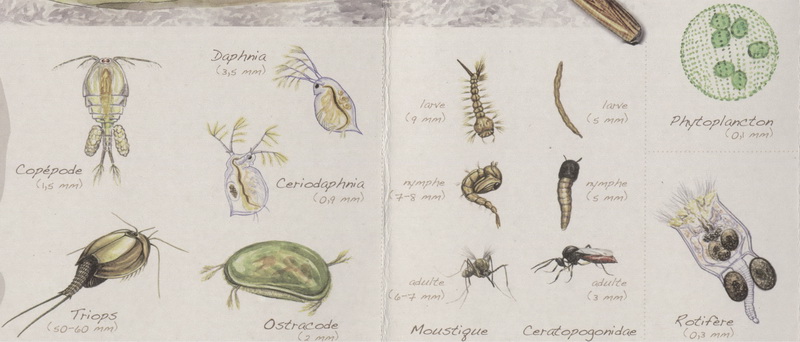 Daphnia
(3,5 mm)
Copépode
(1,5 mm)
Ceriodaphnia
(0,9 mm)
Triops
(50-60 mm)
Ostracode
(2 mm)
larve
(9 mm)
larve
(5 mm)
nymphe
(7-8 mm)
nymphe
(5 mm)
adulte
(6-7 mm)
adulte
(3 mm)
Moustique
Ceratopogonidae
Phytoplancton
(0,1 mm)
Rotifère
(0,3 mm)